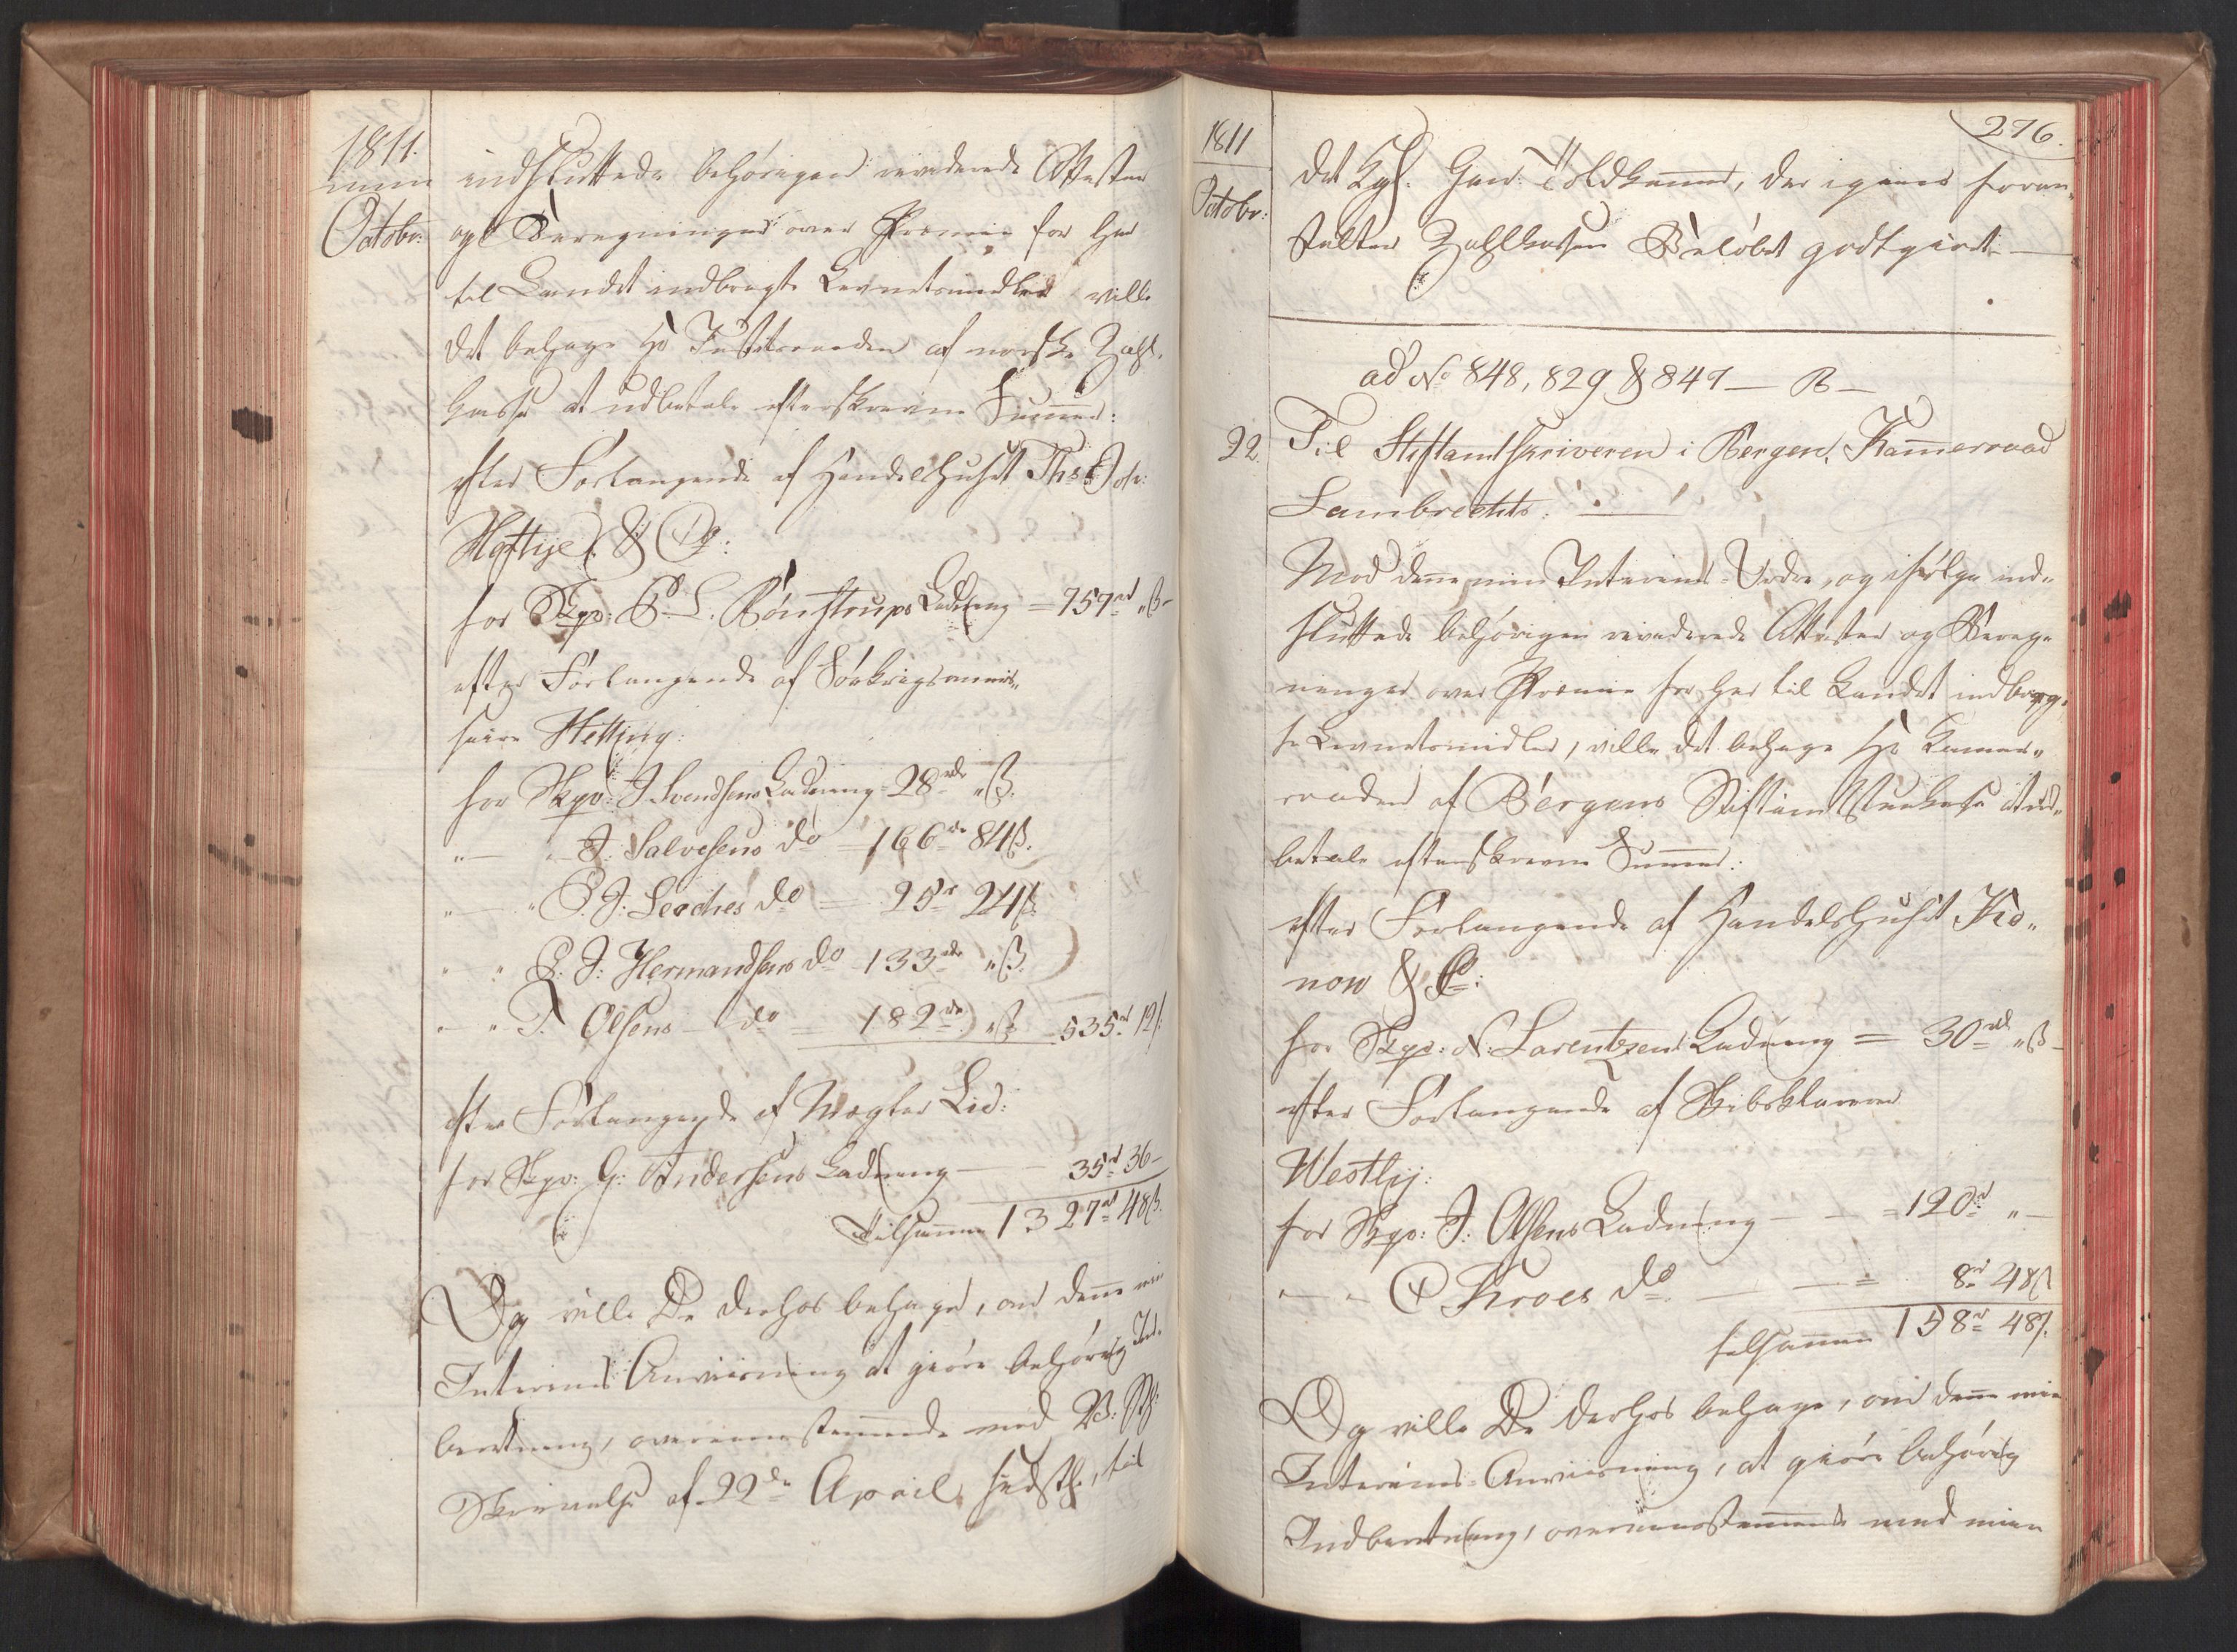 1811.
Octobr:
indsluttede behørigen reviderede Attester
og Beregninger over Præmie for her
til Landet indbragte Levnetsmidler ville
det behage Hr Justitsraaden af norske Zahl-
Casse at udbetale efterskrevne Summer:
efter Forlangende af Handelshuset Ths Joh:
Heftye & Co:
for Skpr: P. L. Rönstrups Ladning = 757 rd " ß
efter Forlangende af Sökrigscommis„
saire Hetting:
for Skpr: J. Svendsens Ladning = 28 rdr " ß.
" — " J. Salvesens do = 166 rdr 84 ß.
" — " P. J. Leoches do = 25 rd 24 ß.
" " P. J. Hermandsens do 133 rdr " ß.
" — " T. Olsens — do = 182 rdr " ß 535 rd 12 ß.
efter Forlangende af Mægler Lie:
for Skpr: G: Andersens Ladning — 35 rd 36 —
Tilsammen 1327 rd 48 ß.
Og ville De derhos behage, om denne min
Interims Anviisning at giöre behørig Ind-
beretning, overeensstemmende med
Skrivelse af 22de April sidstl:, til
1811
Octobr:
276.
det Kgl. Gen: Toldkammer, der igien foran-
stalter Zahlkassen Belöbet godtgiort. —
ad No 848, 829 & 847 — B —
22. Til Stiftamtskriveren i Bergen, Kammerraad
Lambrechts:
Mod denne min Interims-Ordre, og ifølge ind-
sluttede behørigen reviderede Attester og Bereg-
ninger over Præmie for her til Landet indbrag-
te Levnetsmidler, ville det behage Hr Kammer„
raaden af Bergens Stiftamtstuekasse at ud„
betale efterskrevne Summer:
efter Forlangende af Handelshuset Ko„
now & Co:
for Skpr: N. Larentzens Ladning = 30 rd " ß —
efter Forlangende af Skibsklarerer
Westby:
for Skpr: J: Olsens Ladning — = 120 rd " —
" — " P Kroes do — = 8 rd 48 ß
tilsammen 158 rd 48 ß.
Og ville De derhos behage, om denne min
Interims-Anviisning, at giöre behørig
Indberetning, overeensstemmende med min